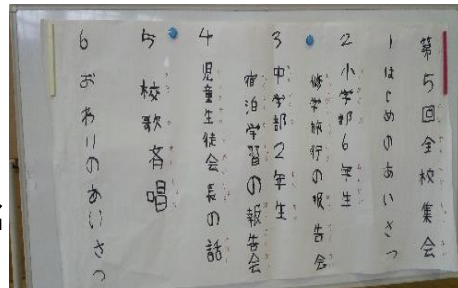 第5回全校集会
1 はじめのあいさつ
2 小学部6年生
修学旅行の報告会
3 中学部2年生
宿泊学習の報告会
4 児童生徒会長の話
5 校歌斉唱
6 おわりのあいさつ